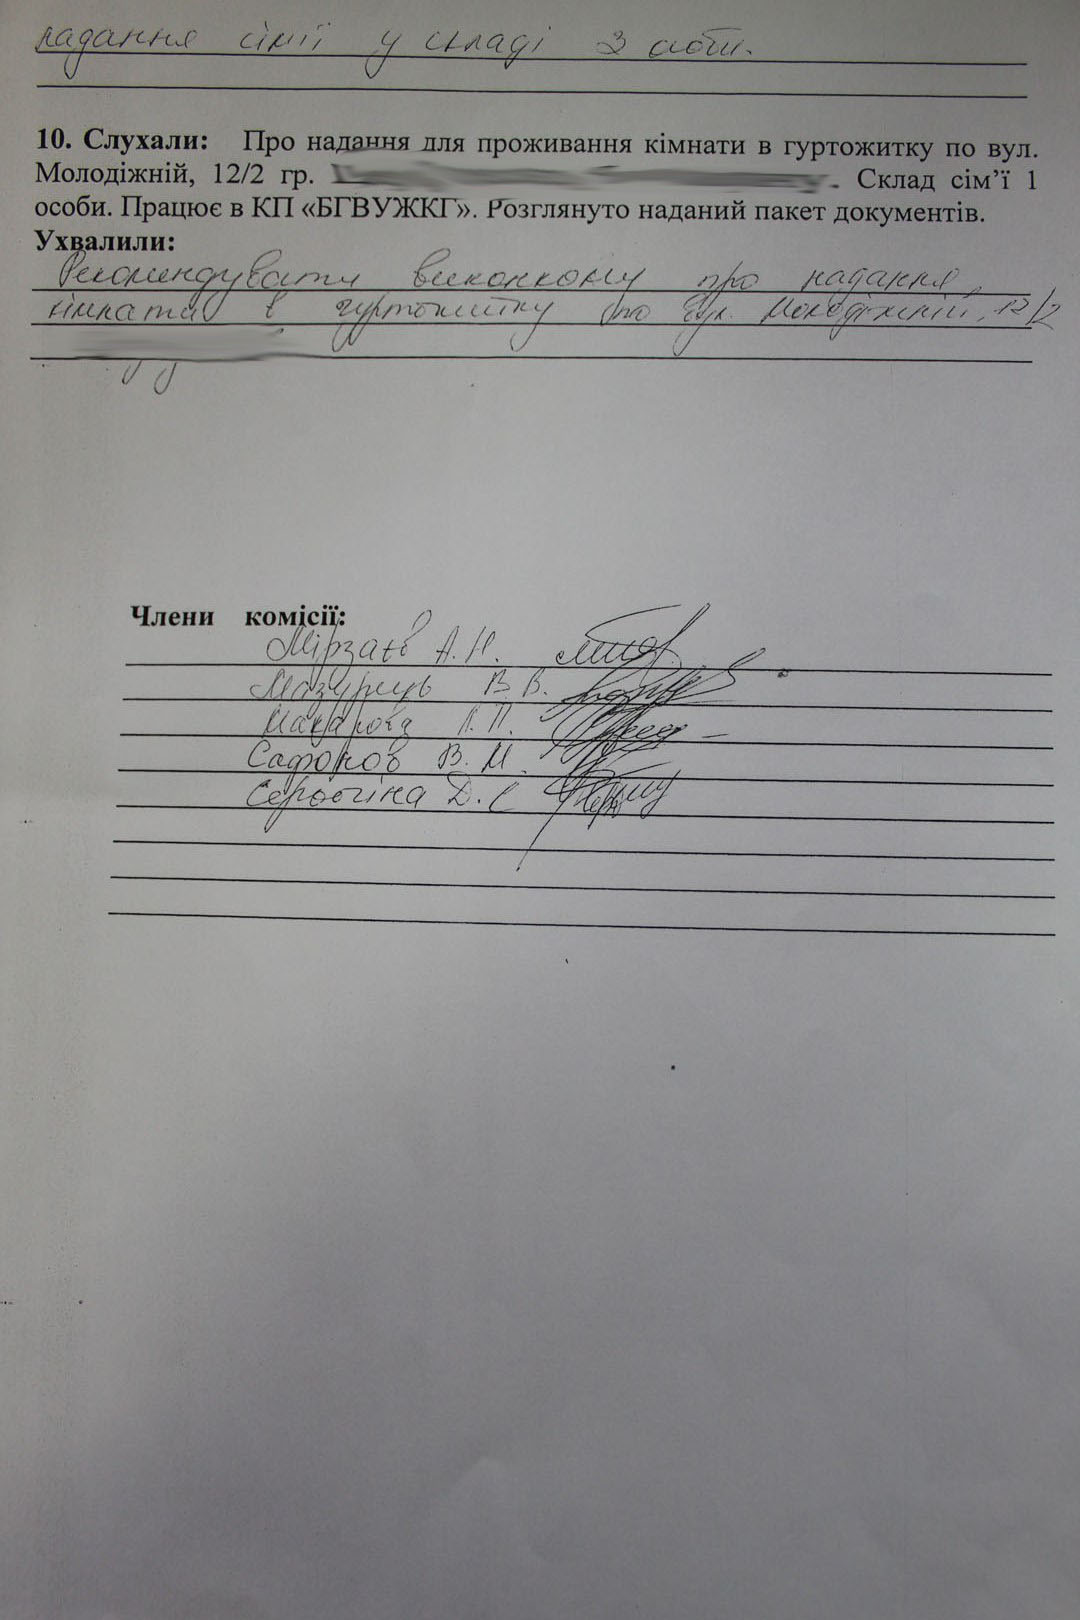 надання сімії у складі 3 осіб.
10. Слухали: Про надання для проживання кімнати в гуртожитку по вул.
Молодіжній, 12/2 гр. . Склад сім’ї 1
особи. Працює в КП «БГВУЖКГ». Розглянуто наданий пакет документів.
Ухвалили:
Рекомендувати виконкому про надання
кімнати в гуртожитку по вул. Молодіжній, 12/2
Члени комісії:
Мірзаєв А.Н.
Мазурець В.В.
Макарова Л.П.
Сафонов В.М.
Серьогіна Д.С